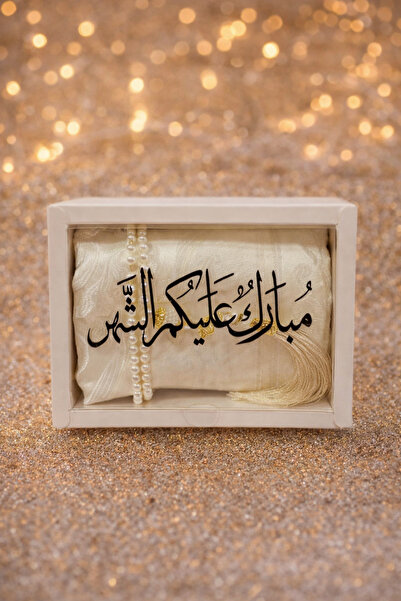 مُبارَكٌ عَلَيكُم الشَّهر